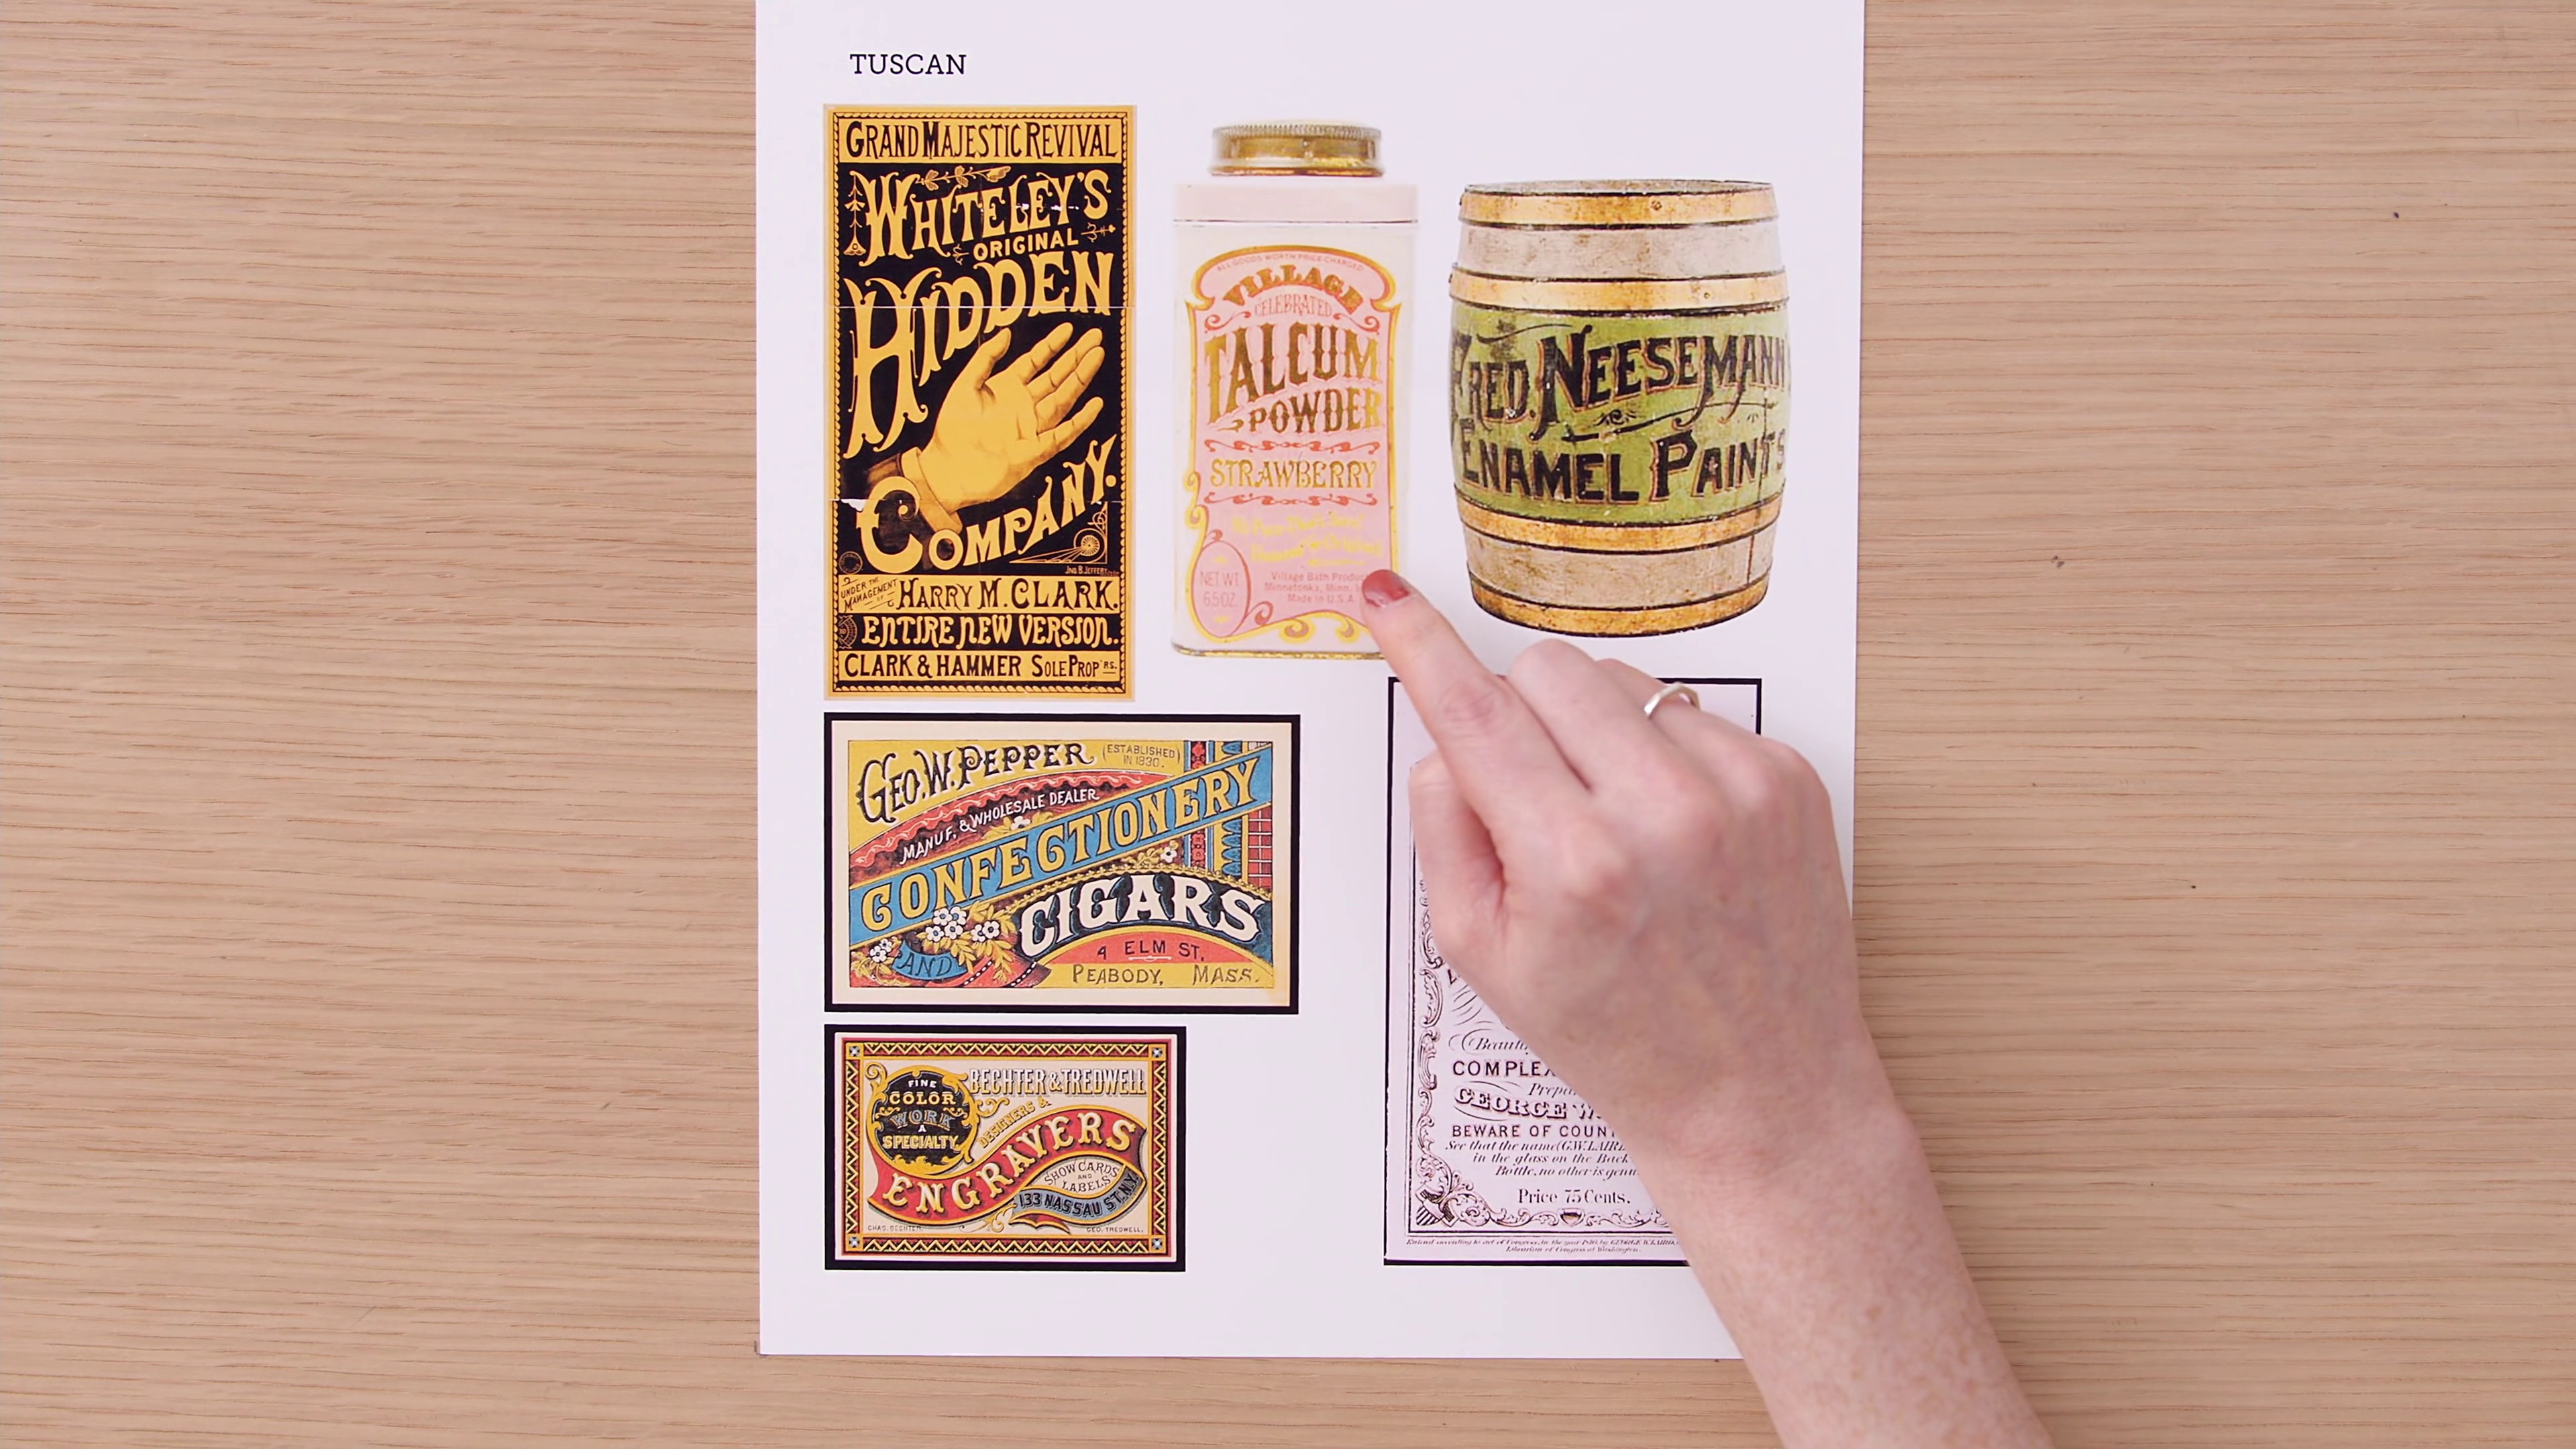 TUSCAN
GRAND MAJESTIC REVIVAL
WHITELEY'S
ORIGINAL
HIDDEN
COMPANY.
JNO. B. JEFFERY
UNDER THE
MANAGEMENT
OF
HARRY M. CLARK.
ENTIRE NEW VERSION.
CLARK & HAMMER SOLE PROP'RS.
ALL GOODS WORTH PRICE CHARGED
VILLAGE
CELEBRATED
TALCUM
POWDER
STRAWBERRY
NET WT.
6.5 OZ.
Village Bath Produc
Minnetonka, Minn.
Made in U.S.A.
FRED. NEESEMANN
ENAMEL PAINTS
GEO. W. PEPPER
(ESTABLISHED
IN 1830.)
MANUF. & WHOLESALE DEALER
CONFECTIONERY
AND
CIGARS
4 ELM ST.
PEABODY, MASS.
FINE
COLOR
WORK
A
SPECIALTY
BECHTER & TREDWELL
DESIGNERS &
ENGRAVERS
SHOW CARDS
AND
LABELS
133 NASSAU ST. N.Y.
CHAS. BECHTER.
GEO. TREDWELL.
Beaut
COMPLEX
Prepa
GEORGE W.
BEWARE OF COUN
See that the name (G.W. LAIRD
in the glass on the Back
Bottle, no other is genu
Price 75 Cents.
Entered according to act of Congress, in the year by GEORGE W. LAIRD,
Librarian of Congress at Washington.